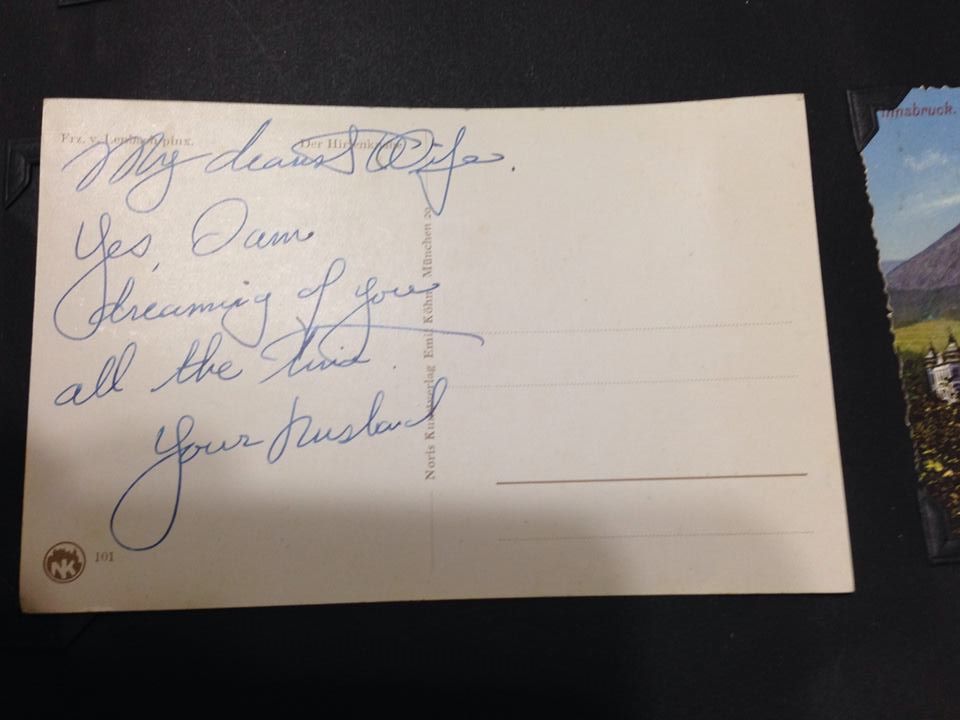 Frz. v. Lenbach pinx.
Der Hirtenknabe
My dearest Wife.
Yes, I am
dreaming of you
all the time.
Your Husband
Noris Kunstverlag Emil Köhn, München 29
NK
101
Innsbruck.